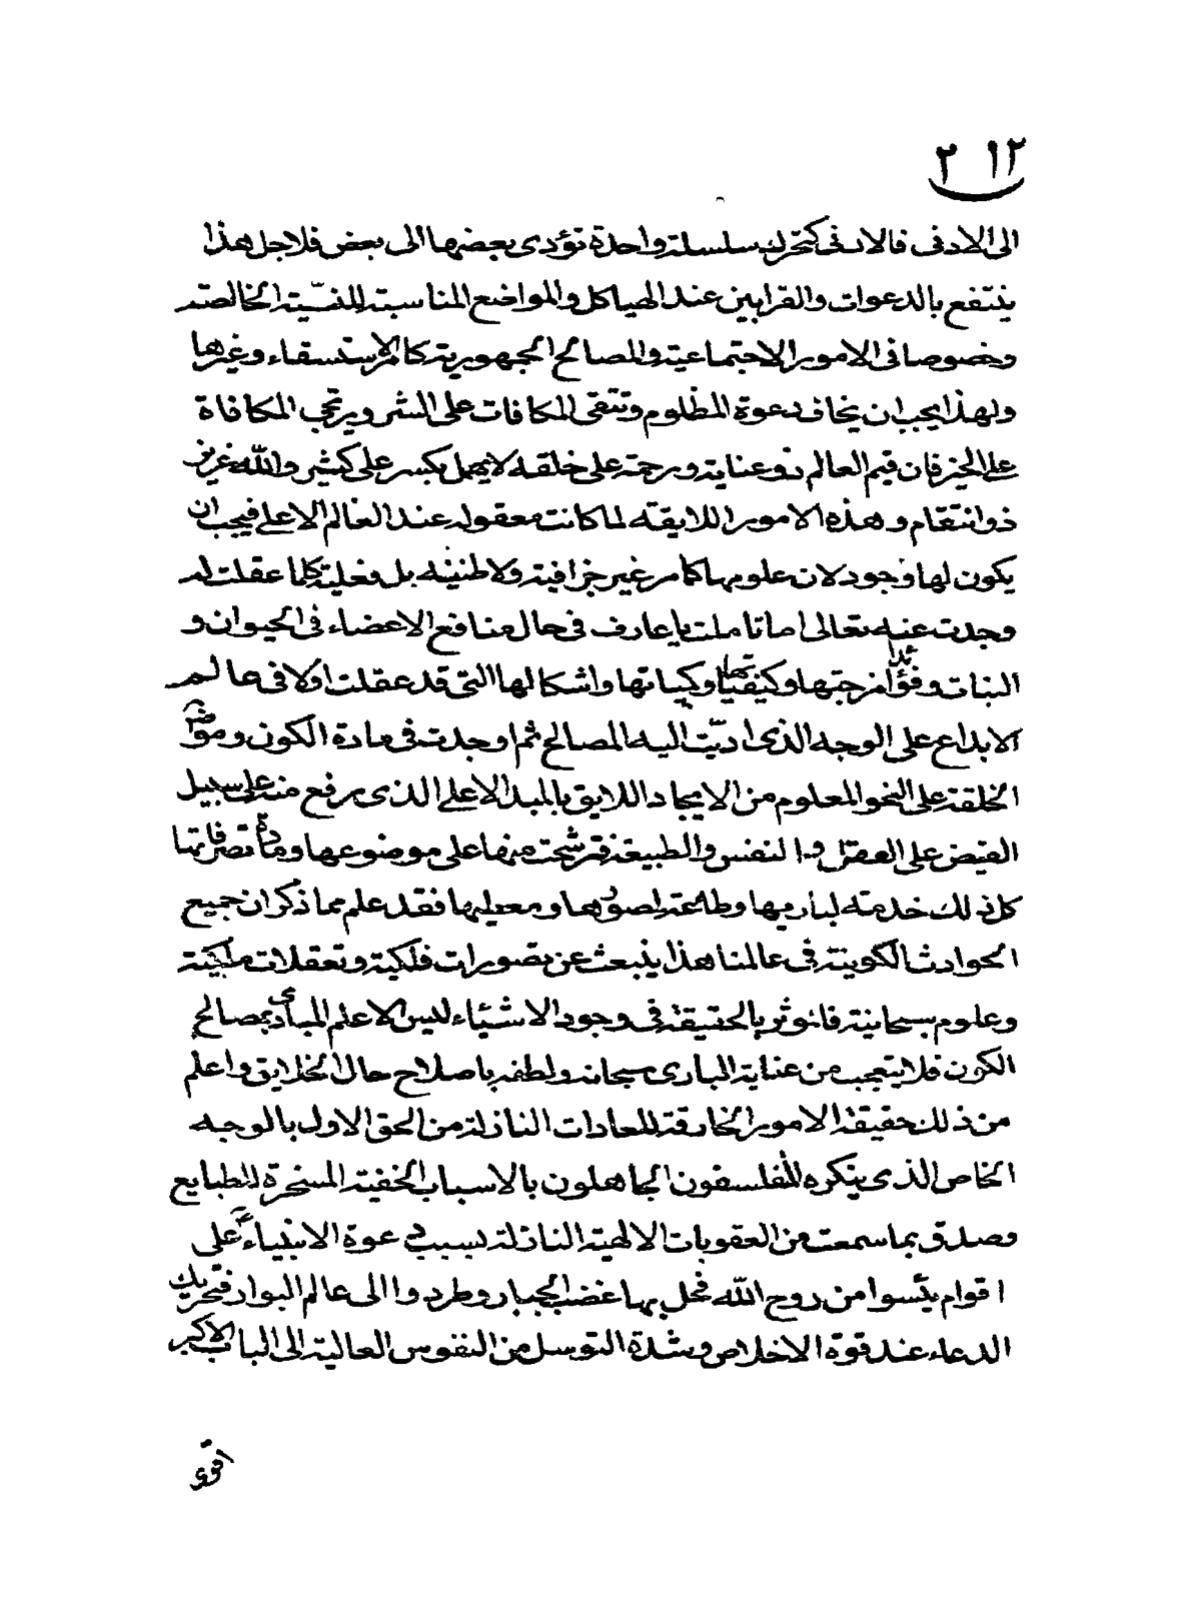 ٢١٢
الى الادنى فالادنى كتحريك سلسلة واحدة تؤدى بعضها الى بعض فلاجل هذا
ينتفع بالدعوات والقرابين عند الهياكل والمواضع المناسبة للنفسية الخالصة
وخصوصا فى الامور الاجتماعية والمصالح الجمهورية كالاستسقاء وغيرها
ولهذا يجب ان يخاف دعوة المظلوم وتتقى المكافات على الشر ويرتجى المكافاة
على الخير فان قيم العالم ذو عناية ورحمة على خلقه لا يهمل بكسر على كثير والله عزيز
ذو انتقام وهذه الامور اللايقة لما كانت معقولة عند العالم الاعلى فيجب ان
يكون لها وجود لان علومها كما مر غير جزافية ولا ظنية بل فعلية كلما عقلت له
وجدت عنه تعالى اما تاملت يا عارف فى حال منافع الاعضاء فى الحيوان و
النبات وفوائد امزجتها وكيفياتها وكمياتها واشكالها التى قد عقلت اولا فى عالم
الابداع على الوجه الذى ادّيت اليه المصالح ثم اوجدت فى مادة الكون وموضوع
الخلقة على النحو المعلوم من الايجاد اللايق بالمبدا الاعلى الذى يرفع منه على سبيل
الفيض على العقل والنفس والطبيعة فترشحت منها على موضوعها ومادة تصرفاتها
كل ذلك خدمة لباريها وطاعة لصورها ومعطيها فقد علم مما ذكر ان جميع
الحوادث الكونية فى عالمنا هذا ينبعث عن تصورات فلكية وتعقلات ملكية
وعلوم سبحانية فالموثر بالحقيقة فى وجود الاشياء ليس الا علم المبادى بمصالح
الكون فلا يتعجب من عناية البارى سبحانه ولطفه باصلاح حال الخلايق واعلم
من ذلك حقيقة الامور الخارقة للعادات النازلة من الحق الاول بالوجه
الخاص الذى ينكره المتفلسفون الجاهلون بالاسباب الخفية المسخرة للطبايع
وصدق بما سمعت من العقوبات الالهية النازلة بسبب دعوة الانبياء ع على
اقوام يئسوا من روح الله فحل بها غضب الجبار وطردوا الى عالم البوار فتحريك
الدعاء عند قوة الاخلاص وشدة التوسل من النفوس العالية الى الباب الاكبر
اقوى